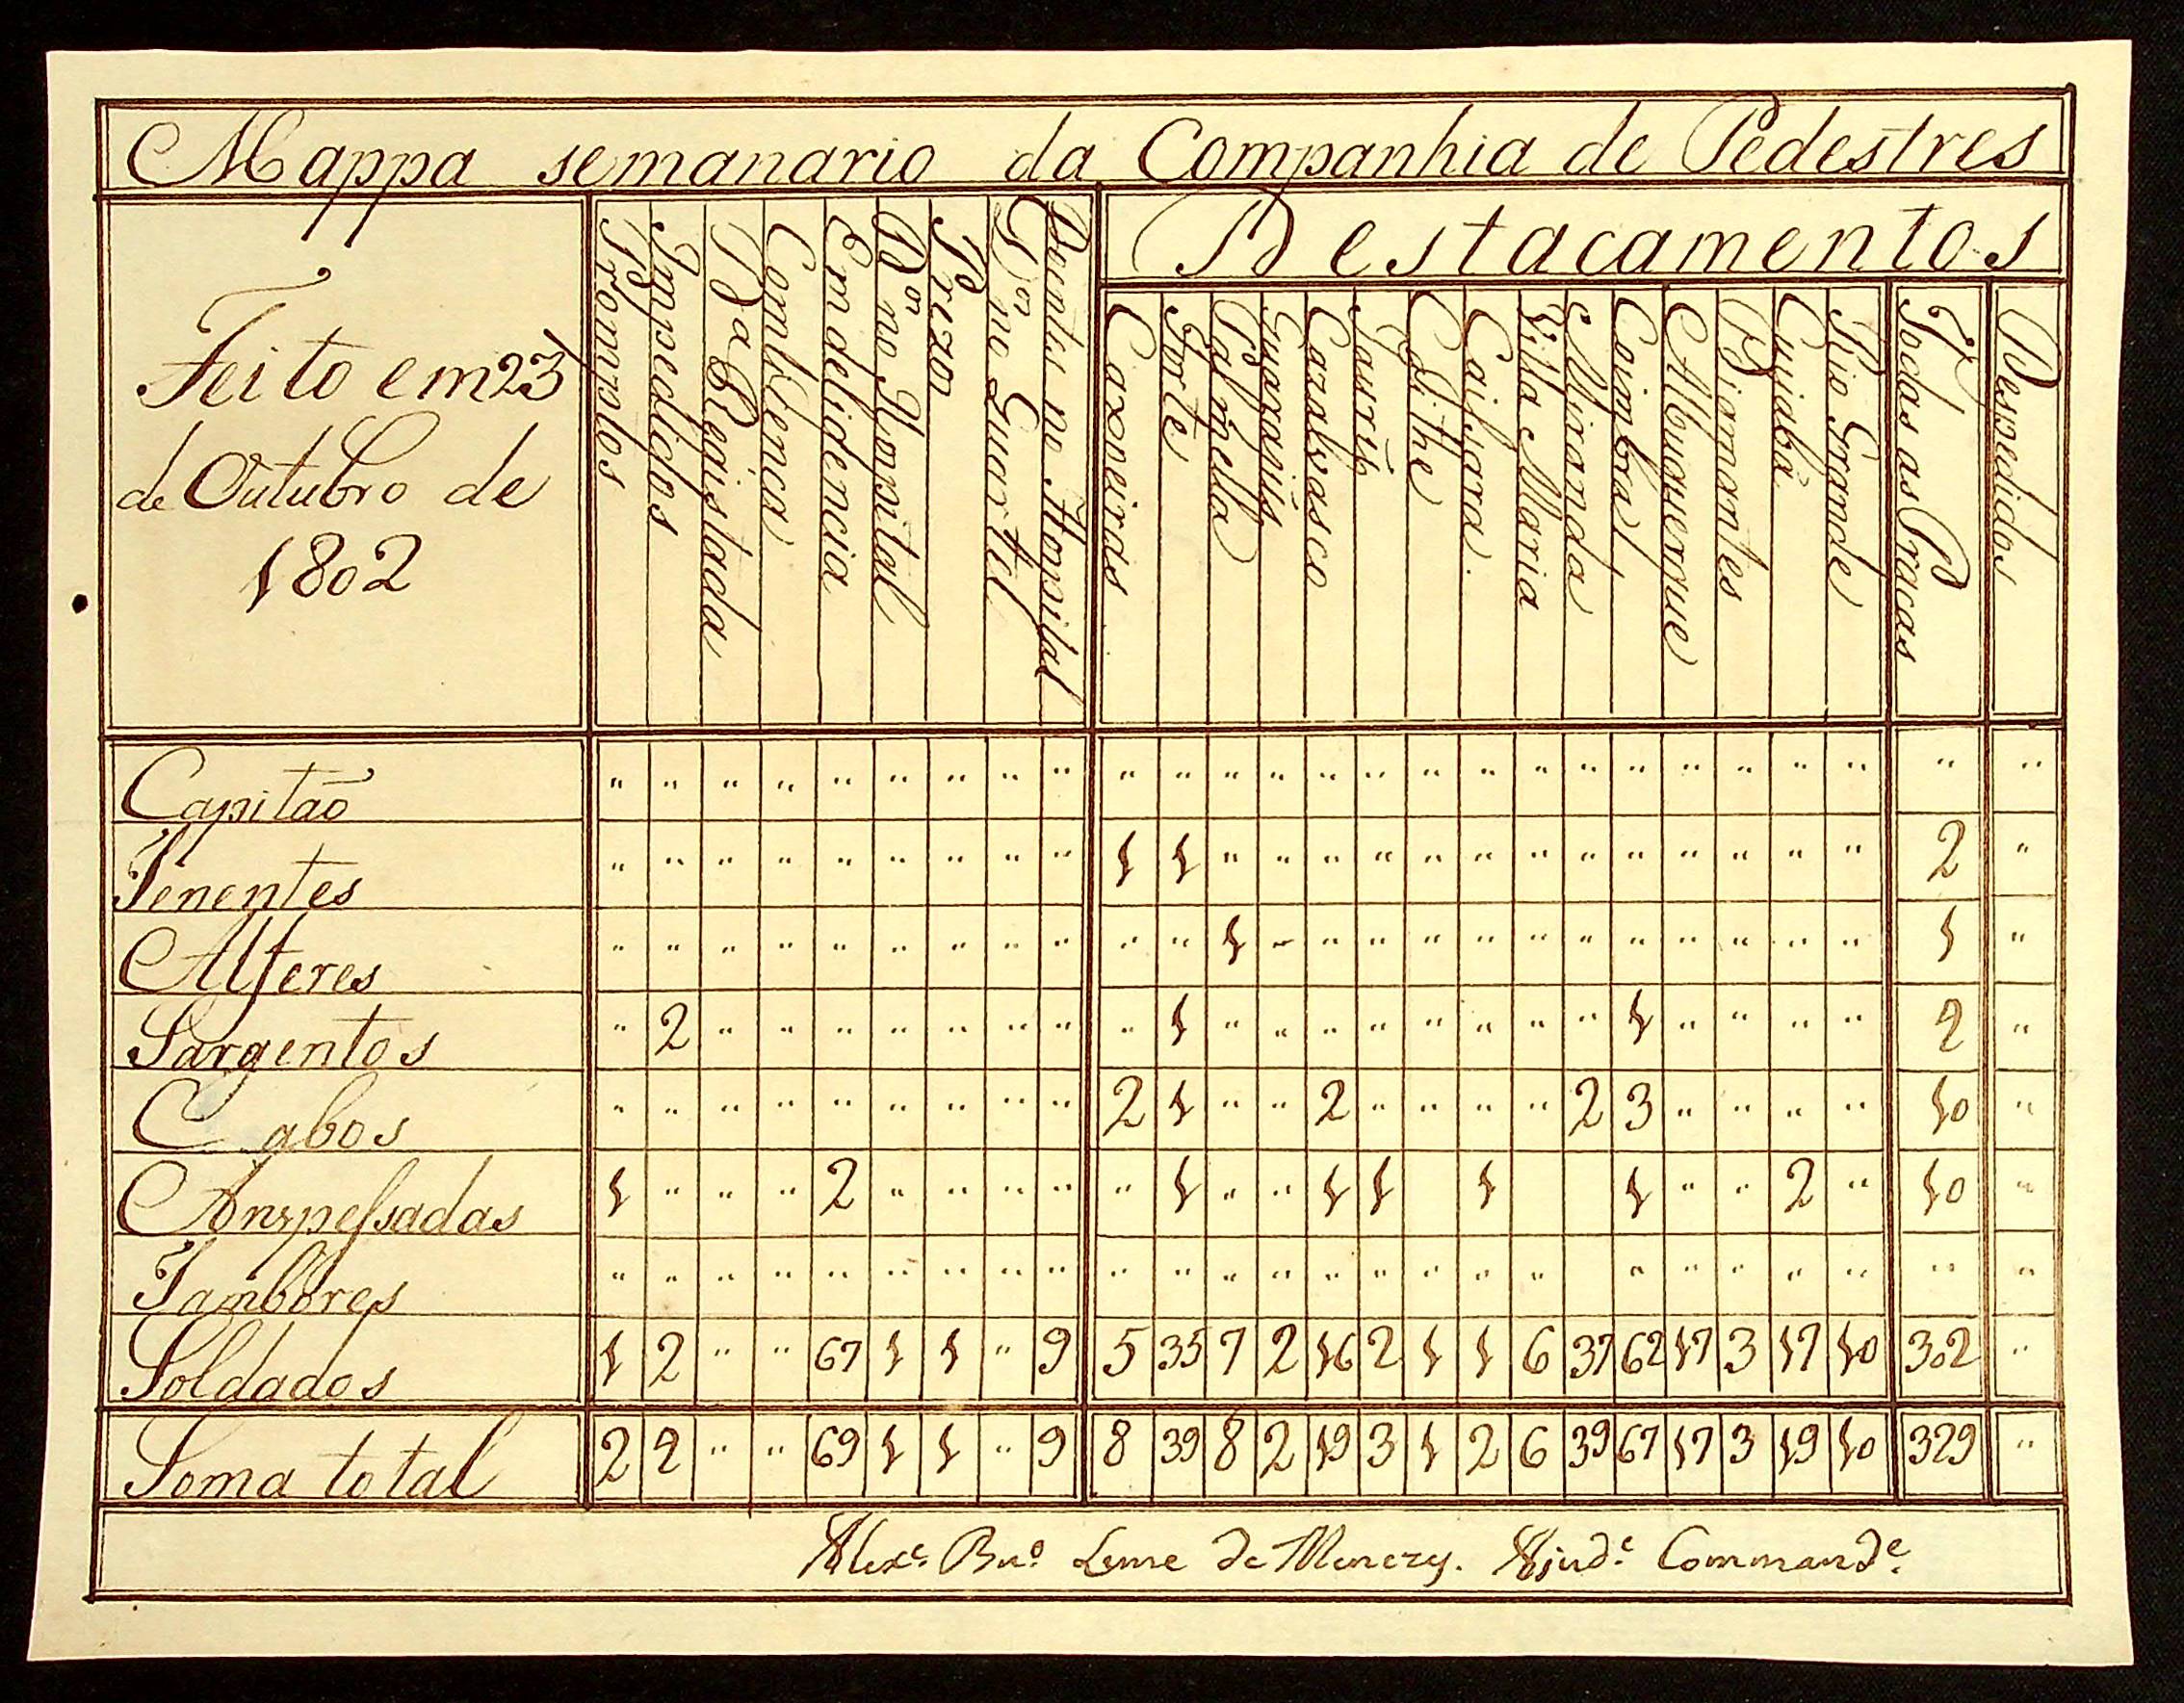 Mappa semanario da Companhia de Pedestres
Feito em 23
de Outubro de
1802
Promptos
Impedidos
Da Registada
Com Licença
Em deligencia
Dº no Hospital
Prezo
Dº no Quartel
Doentes no Hospital
Destacamentos
Caxoeiras
Forte
Palmella
Guarajús
Cazalvasco
Jaurú
Caissara
Villa Maria
Miranda
Coimbra
Albuquerque
Diamantes
Cuiabá
Rio Grande
Todas as Praças
Despedidos
Capitão " " " " " " " " " " " " " " " " " " " " " " " " " "
Tenentes " " " " " " " " " 1 1 " " " " " " " " " " " " " 2 "
Alferes " " " " " " " " " " " 1 " " " " " " " " " " " " 1 "
Sargentos " 2 " " " " " " " " 1 " " " " " " " " 1 " " " " 2 "
Cabos " " " " " " " " " 2 1 " " 2 " " " " 2 3 " " " " 10 "
Anspessadas 1 " " " 2 " " " " " 1 " " 1 1 1 1 " " 2 " 10 "
Tambores " " " " " " " " " " " " " " " " " " " " " " " " "
Soldados 1 2 " " 67 1 1 " 9 5 35 7 2 16 2 1 1 6 37 62 17 3 17 10 302 "
Soma total 2 2 " " 69 1 1 " 9 8 39 8 2 19 3 1 2 6 39 67 17 3 19 10 329 "
Alexe. Buº Leme de Menezes. Ajude. Commande.